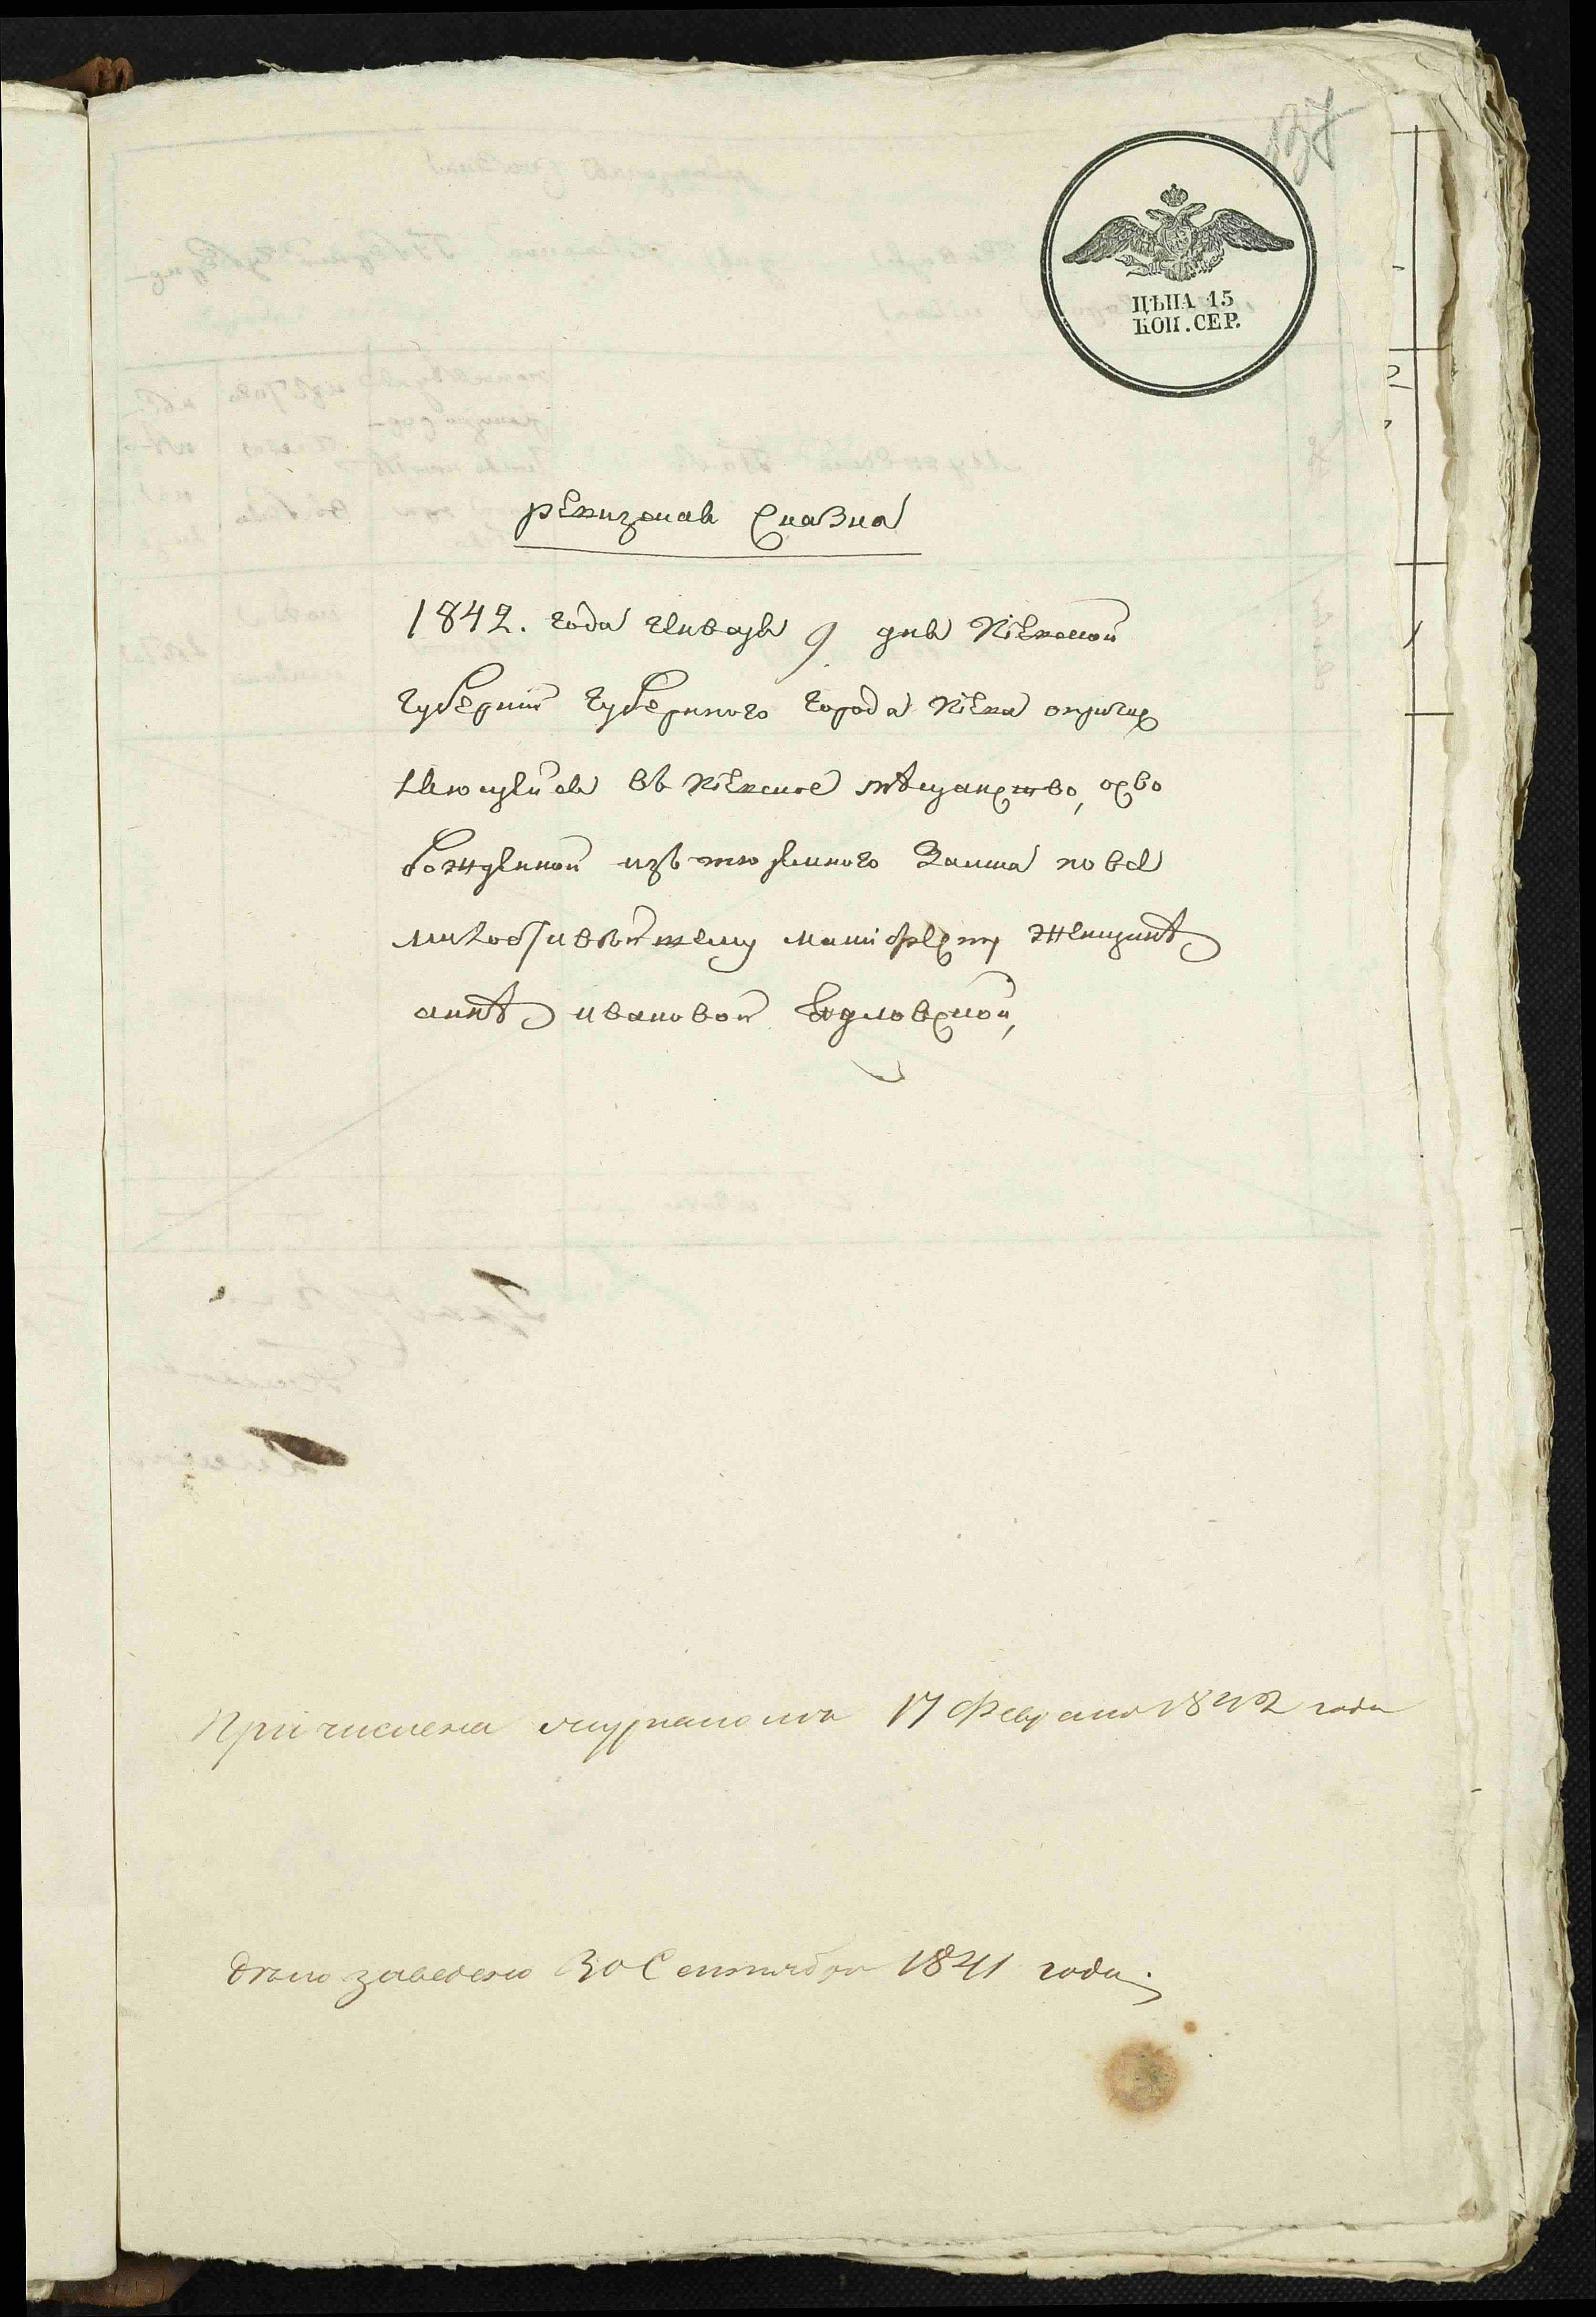 137
ЦѢНА 15
КОП. СЕР.
ревизская Сказка
1842. года генваря 9 дня Кіевской
губерніи губернского города Кіева о причис
ляющейся въ Кіевское мѣщанство, осво
божденной изъ тюремного замка по Все
милостивѣйшему манифесту женщинѣ
аннѣ ивановой
Причислена журналомъ 17 Февраля 1842 года
дѣло заведено 30 Сентября 1841 года.